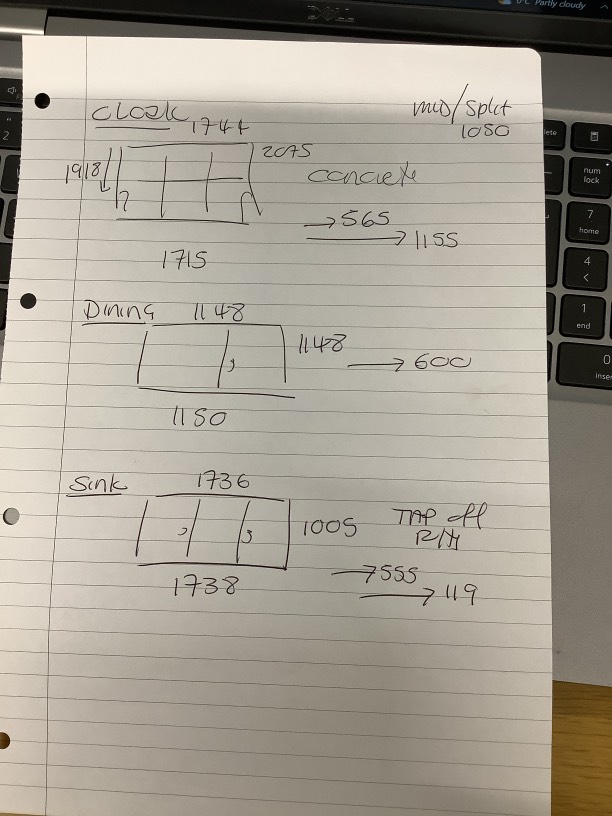 0°C Partly cloudy
DELL
CLOAK
1744
MID/Split
1050
1918
2075
CONCRETE
→565
→1155
1715
Dining
1148
1148
→600
1150
Sink
1736
1005
TAP off
R/H
→555
→119
1738
num
lock
7
home
4
1
end
0